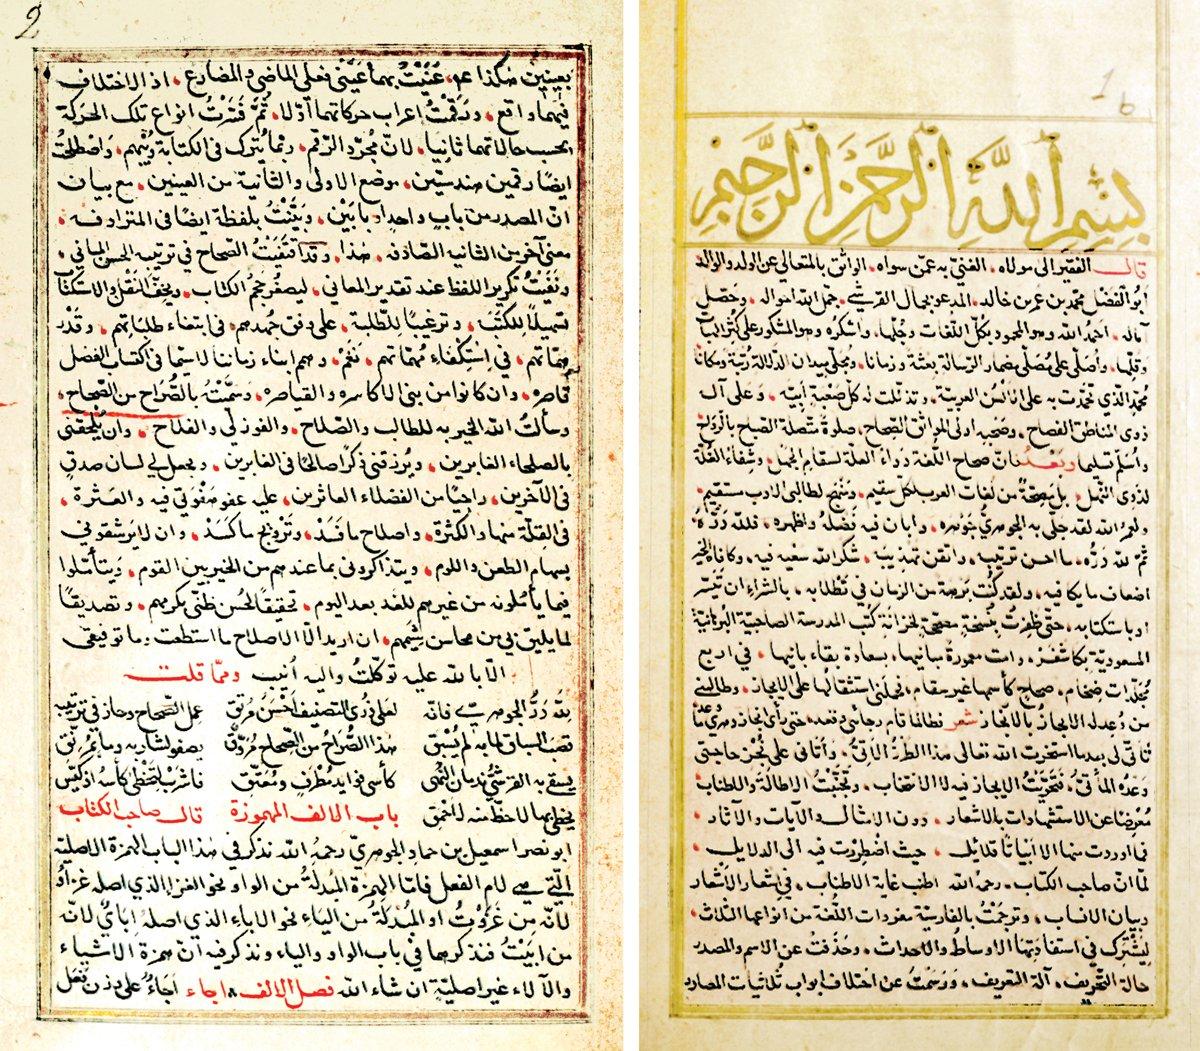 1 b
بِسْمِ اللَّهِ الرَّحْمَنِ الرَّحِيمِ
قال الفقير الى مولاه، الغني به عمن سواه، الواثق بالمتعالي عن الولد والوالد
ابو الفضل محمد بن عمر بن خالد، المدعو بجمال القرشي، جمل الله احواله، وحصل
آماله، احمد الله وهو المحمود بكل اللغات وجلها، واشكره وهو المشكور على كثر
وقلها، واصلي على مصلى مضمار الرسالة بعثة وزمانا، ومجلى ميدان الدلالة رتبة ومكانا
محمد الذي تحدت به على انا العربية، وتذللت له كل صعبة ابية، وعلى آله
ذوي المناطق الفصاح، وصحبه اولى المواثق الصحاح، صلوة متصلة الصباح بالرواح
واسلم تسليما وبعد فان صحاح اللغة دواء العلة لسقام الجهل، وشفاء الغلة
لذوي النهل، بل مصحة من لغات العرب لكل سقيم، ومنهج لطالبي الادب مستقيم،
ولعمر الله لقد حلى به الجوهري جوهره، وابان فيه فضله واظهره، فلله دره
ثم لله دره، ما احسن ترتيبه، واتقن تهذيبه، شكر الله سعيه فيه، وكافاه الخير
اضعاف ما يكافيه، ولقد كنت برهة من الزمان في تطلابه، بالشراء ان تيسر
او باستكتابه، حتى ظفرت بنسخة مصححة بخزانة كتب المدرسة الصاحبية البرهانية
المسعودية بكاشغر، دامت معمورة مبانيها، بسعادة بقاء بانيها، في اربع
مجلدات ضخام، صحاح كاسمها غير سقام، فحملني استثقالها على الايجاز، وطالبني
من وعد له الايجاز بالانجاز شعر فطالما قام رجائي وقعد، حتى راى انجاز دهري ما وعد
فاتى لي بعد ما استخرت الله تعالى هذا الطرة الآفة، واتا في على نجز حاجتي
وعده الماتي، فتحريت الايجاز فيه لا الانتخاب، وتجنبت الاطالة والاطناب
معرضا عن الاستشهادات بالاشعار، دون الامثال والآيات والآثار،
فما اوردت منها الا ابياتا قلائل، حيث اضطررت فيه الى الدلايل،
لما ان صاحب الكتاب، رحمه الله اطنب غاية الاطناب، في اشعار الاشعار
وبيان الانساب، وترجمت بالفارسية مفردات اللغة من انواعها الثلاث،
ليشترك في استفادتها الاوساط والاحداث، وحذفت عن الاسم والمصدر
حالة التعريف، آلة التعريف، ورسمت عن اختلاف ابواب ثلاثيات المصادر
2
بعينين هكذا ع ع، عنيت بهما عيني فعلي الماضي والمضارع، اذ الاختلاف
فيهما واقع، ورقمت اعراب حركاتهما اولا، ثم فسرت انواع تلك الحركة
بحسب حالاتها ثانيا، لان مجرد الرقم، ربما يترك في الكتابة ويتهم، واصطلحت
ايضا رقمين هندستين، موضع الاولى والثانية من العينين، مع بيان
ان المصدر من باب واحد او بابين، وبينت بلفظة ايضا في المترادف،
معنى آخر من الثانية الصادف، هذا، وقد اقتفيت الصحاح في ترتيبه الحسن المباني،
ونفيت تكرير اللفظ عند تقدير المعاني، ليصغر حجم الكتاب، ويخف النقل والاستكتاب
تسهيلا للكتبة، وترغيبا للطلبة، على وفق جهدهم، في ابتغاء طلباتهم، وقدر
همتهم، في استكفاء مهماتهم، نعم، وهم ابناء زماننا لا سيما في اكتساب الفضل
قاصره، وان كانوا من بني الاكاسرة والقياصره، وسميته بالصراح من الصحاح،
وسألت الله الخير به للطالب والصلاح، والفوز لي والفلاح، وان يلحقني
بالصلحاء الغابرين، ويرزقني ذكرا صالحا في الغابرين، ويجعل لي لسان صدق
في الآخرين، راجيا من الفضلاء العاثرين، عليه عفو هفوتي فيه والعثرة،
في القلة منها والكثرة، واصلاح ما فسد، وترويج ما كسد، وان لا يرشقوني
بسهام الطعن واللوم، ويتذاكروني بما عندهم من الخير بين القوم، ويتأملوا
فيما يأملونه من غيرهم للغد بعد اليوم، تحقيقا لحسن ظني بكرمهم، وتصديقا
لما يليق بي من محاسن شيمهم، ان اريد الا الاصلاح ما استطعت وما توفيقي
الا بالله عليه توكلت واليه انيب ومما قلت
لله در الجوهري فانه لعلى ذوي التصنيف احسن مرتق عمل الصحاح وحاز في ترتيبه
قصب السباق لما به لم يسبق هذا الصراح من الصحاح مروق يصفو لشاربه وما يترنق
يسقي به القرشي ندمان النهى كأسي فوايد مطرف ومعتق فاشرب لتحظى كأسه اذ كيس
يحظى بها لا حظ منه لاحمق باب الالف المهموزة قال صاحب الكتاب
ابو نصر اسمعيل بن حماد الجوهري رحمه الله نذكر في هذا الباب الهمزة الاصلية
التي هي لام الفعل فاما الهمزة المبدلة من الواو نحو العزاء الذي اصله عزاو
لانه من عزوت او المبدلة من الياء نحو الاباء الذي اصله اباي لانه
من ابيت فنذكرهما في باب الواو والياء ونذكر فيه ان همزة الاشياء
والآلاء غير اصلية ان شاء الله فصل الالف اجاء اجاء على وزن فعل